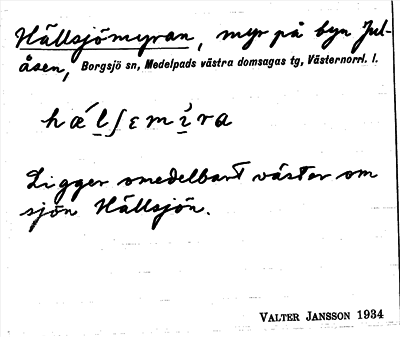 Hällsjömyran, myr på byn Jul-
åsen, Borgsjö sn, Medelpads västra domsagas tg, Västernorrl. l.
hǽlʃɛmìra
Ligger omedelbart väster om
sjön Hällsjön.
VALTER JANSSON 1934